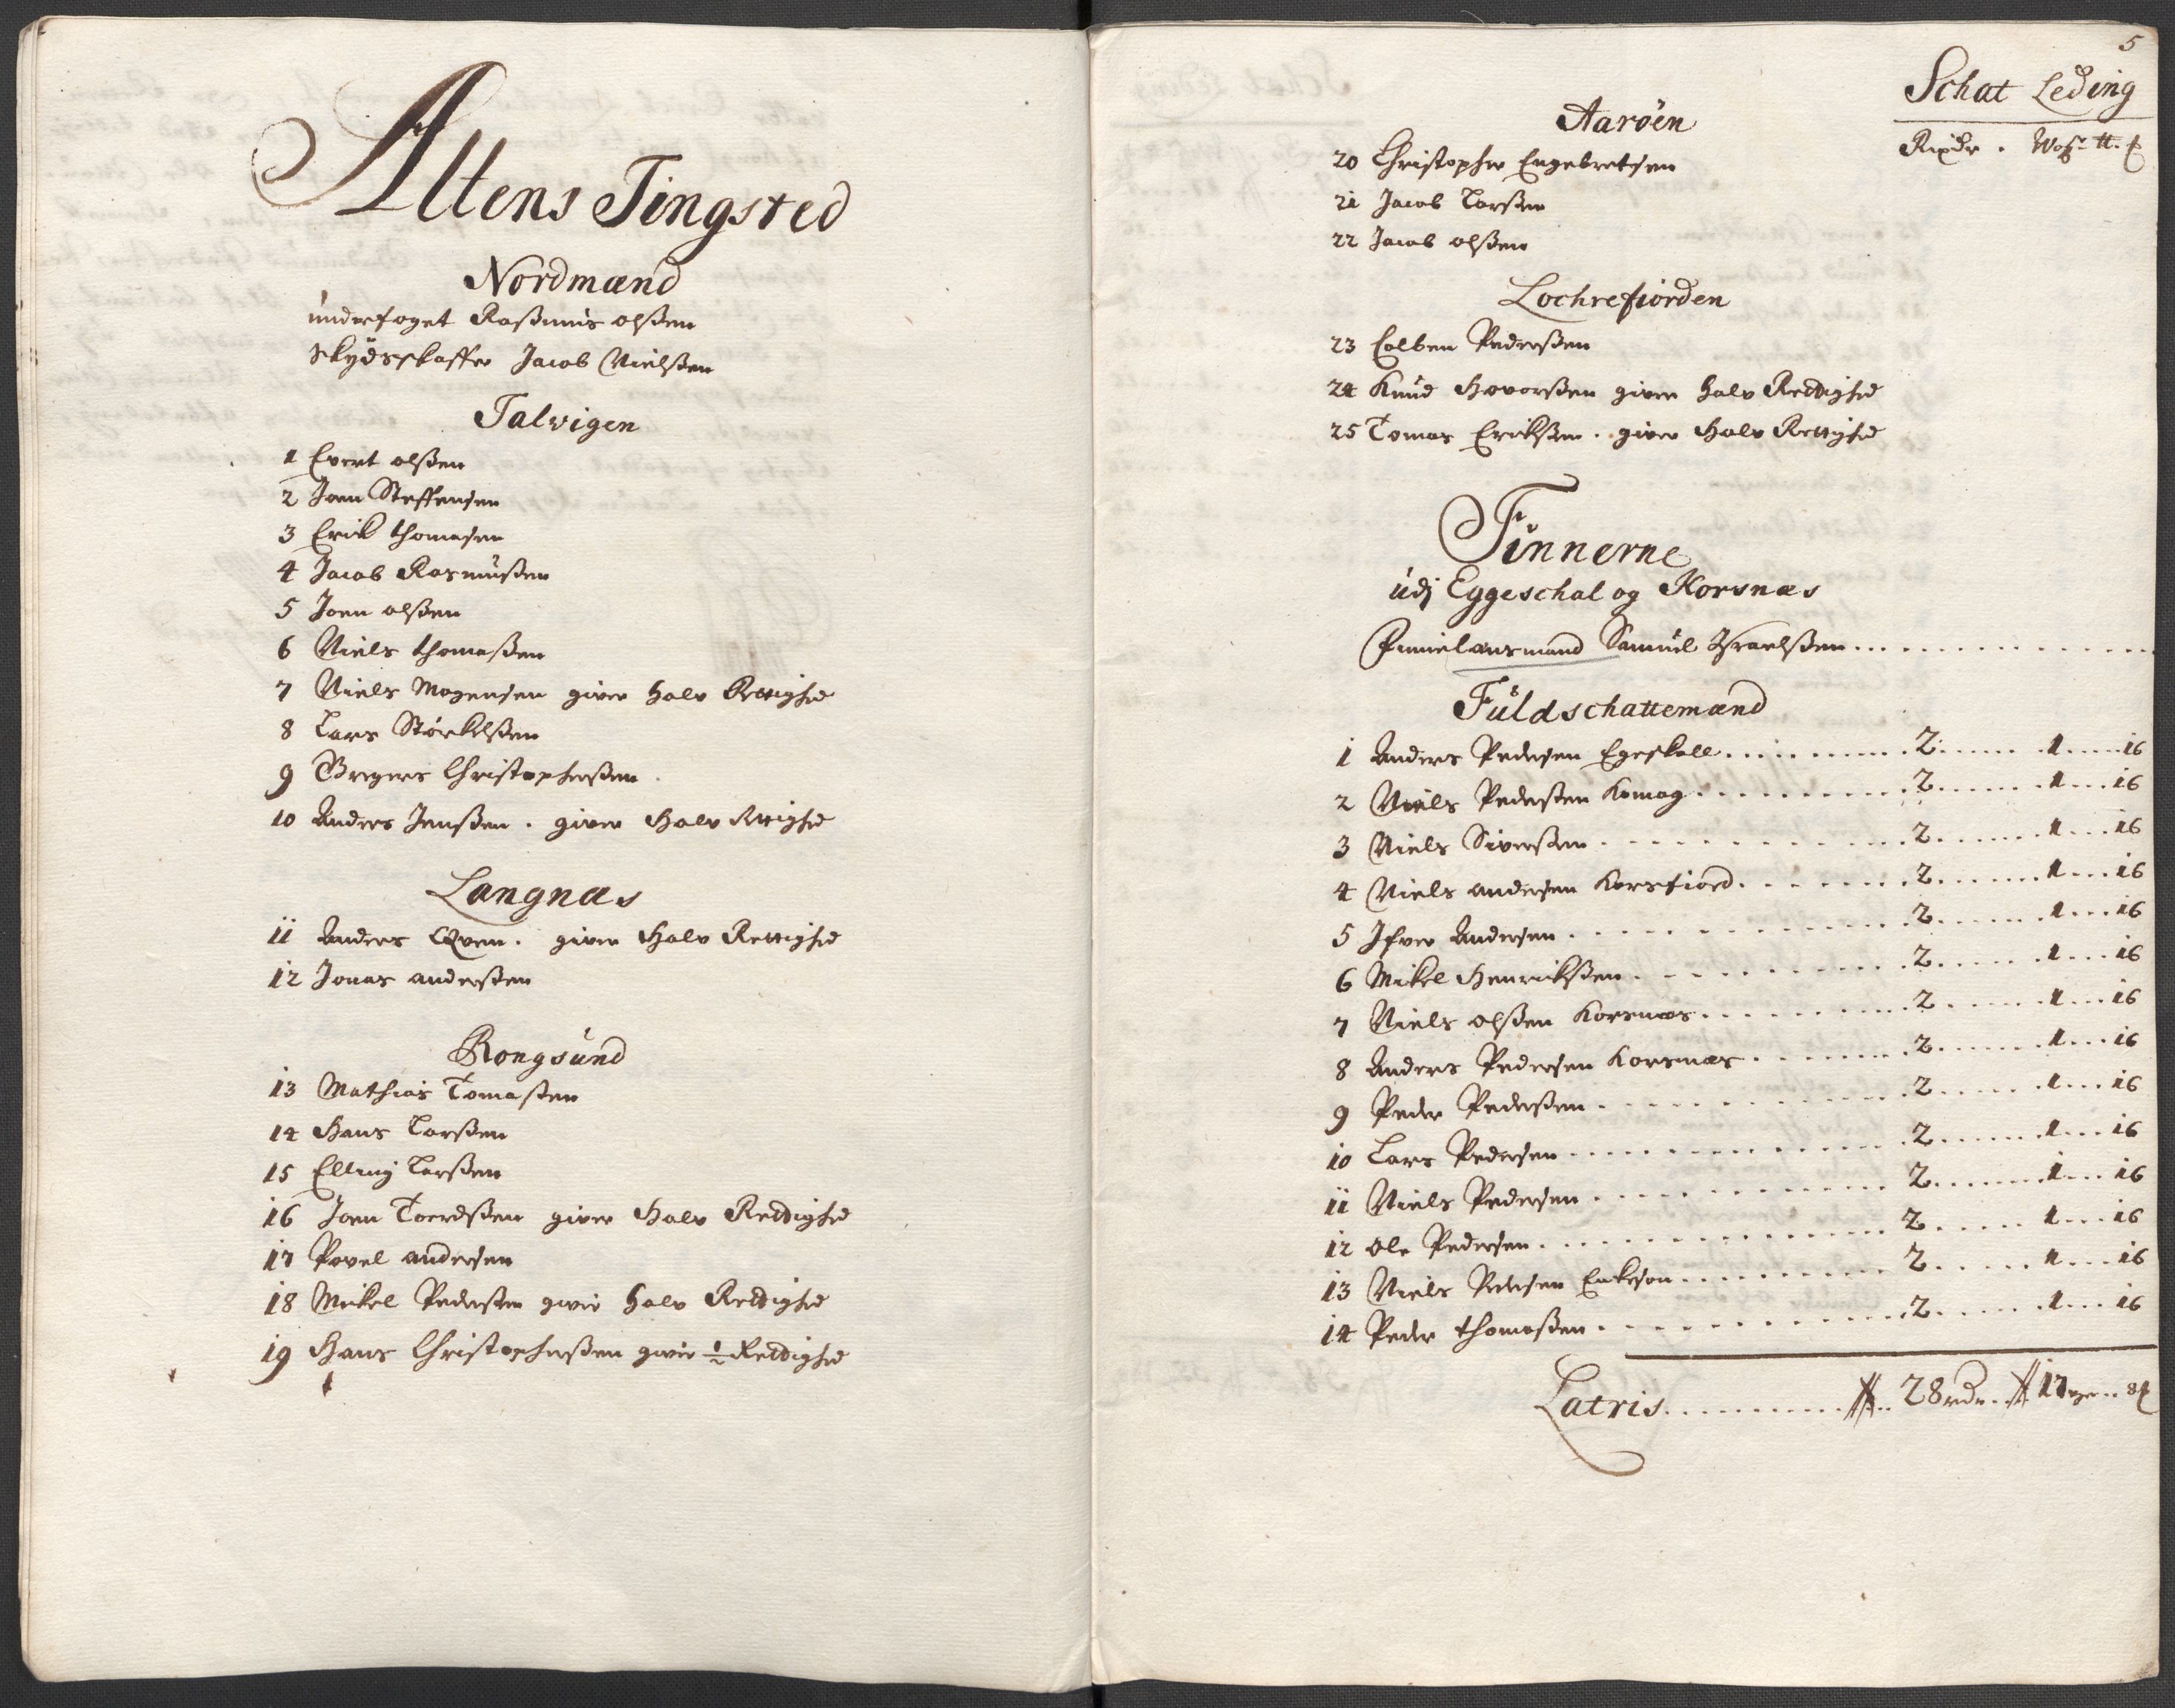 Altens Tingsted
Nordmænd
underfoget Rasmus olßen
Skydsskaffer Jacob Nielßen
Talvigen
1 Evert olßen
2 Joen Steffensen
3 Erick thomasen
4 Jacob Rasmußen
5 Joen olßen
6 Niels thomaßen
7 Niels Mogensen giver halv Rettighed
8 Lars Størckelßen
9 Gregers Christophersßen
10 Anders Jenßen . giver Halv Rettighed
Langnæs
11 Anders Qven . giver Halv Rettighed
12 Jonas anderßen
Rongsund
13 Mathias Tomaßen
14 Hans Larßen
15 Elling Larßen
16 Joen Toerdßen giver Halv Rettighed
17 Povel andersen
18 Mickel Pederßen giver halv Rettighed
19 Hans Christopherßen giver ½ Rettighed
5
Schat Leding
Rixdr . Wog: tt. ß
Aarøen
20 Christopher Engebretsen
21 Jacob Larßen
22 Jacob olßen
Lochrefiorden
23 Colben Pederßen
24 Knud Havorßen giver halv Rettighed
25 Tomas Erickßen . giver Halv Rettighed
Finnerne
udj Eggeschal og Korsnæs
Finnelensmand Samuel Israelßen
Fuldschattemænd
1 Anders Pedersen Egeskall 2 1 16
2 Niels Pederßen Komag 2 1 16
3 Niels Siverßen 2 1 16
4 Niels andersen Korsfiord 2 1 16
5 Ifver Andersen 2 1 16
6 Mikel Henrickßen 2 1 16
7 Niels olßen Korsnæs 2 1 16
8 Anders Pedersen Korsnæs 2 1 16
9 Peder Pederßen 2 1 16
10 Lars Pedersen 2 1 16
11 Niels Pedersen 2 1 16
12 Ole Pedersen 2 1 16
13 Niels Pedersen 2 1 16
14 Peder thomaßen 2 1 16
Latris 28 rdr 17 8